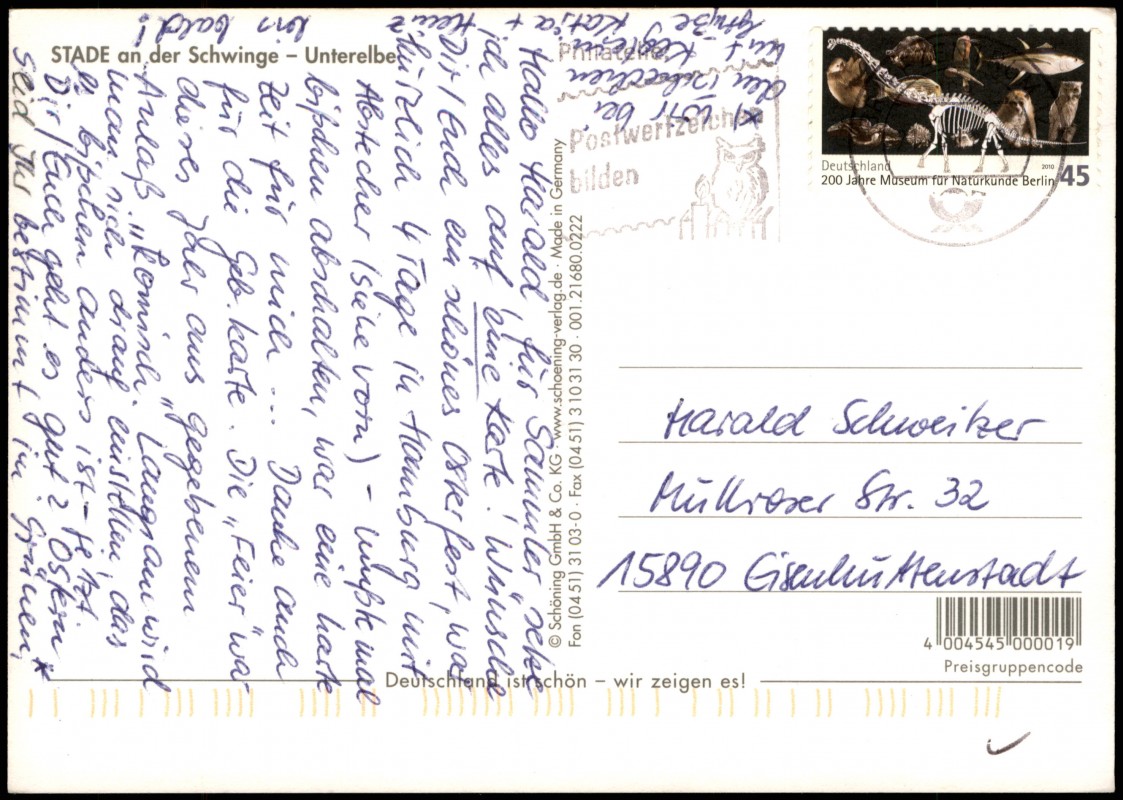 STADE an der Schwinge – Unterelbe
Hallo Harald, für Sammler setze
ich alles auf eine Karte! Wünsche
Dir/Euch ein schönes Osterfest, war
kürzlich 4 Tage in Hamburg mit
Abstecher (siehe vorn) – mußte mal
bißchen abschalten, war eine harte
Zeit für mich ... Danke auch
für die Geb.karte. Die „Feier" war
dieses Jahr aus gegebenem
Anlaß „komisch". Langsam wird
man sich drauf einstellen, das
es bißchen anders ist – jetzt.
Dir/Euch geht es gut? Ostern
seid Ihr bestimmt im Grünen, *
bis bald!
Grüße Katja + Heinz
* wir bei
den Mädchen
© Schöning GmbH & Co. KG · www.schoening-verlag.de · Made in Germany
Fon (04 51) 31 03-0 · Fax (04 51) 3 10 31 30 · 001.21680.0222
Philatelie
Postwertzeichen
bilden
Deutschland
2010
200 Jahre Museum für Naturkunde Berlin
45
Harald Schweitzer
Müllroser Str. 32
15890 Eisenhüttenstadt
4 004545 000019
Preisgruppencode
Deutschland ist schön – wir zeigen es!